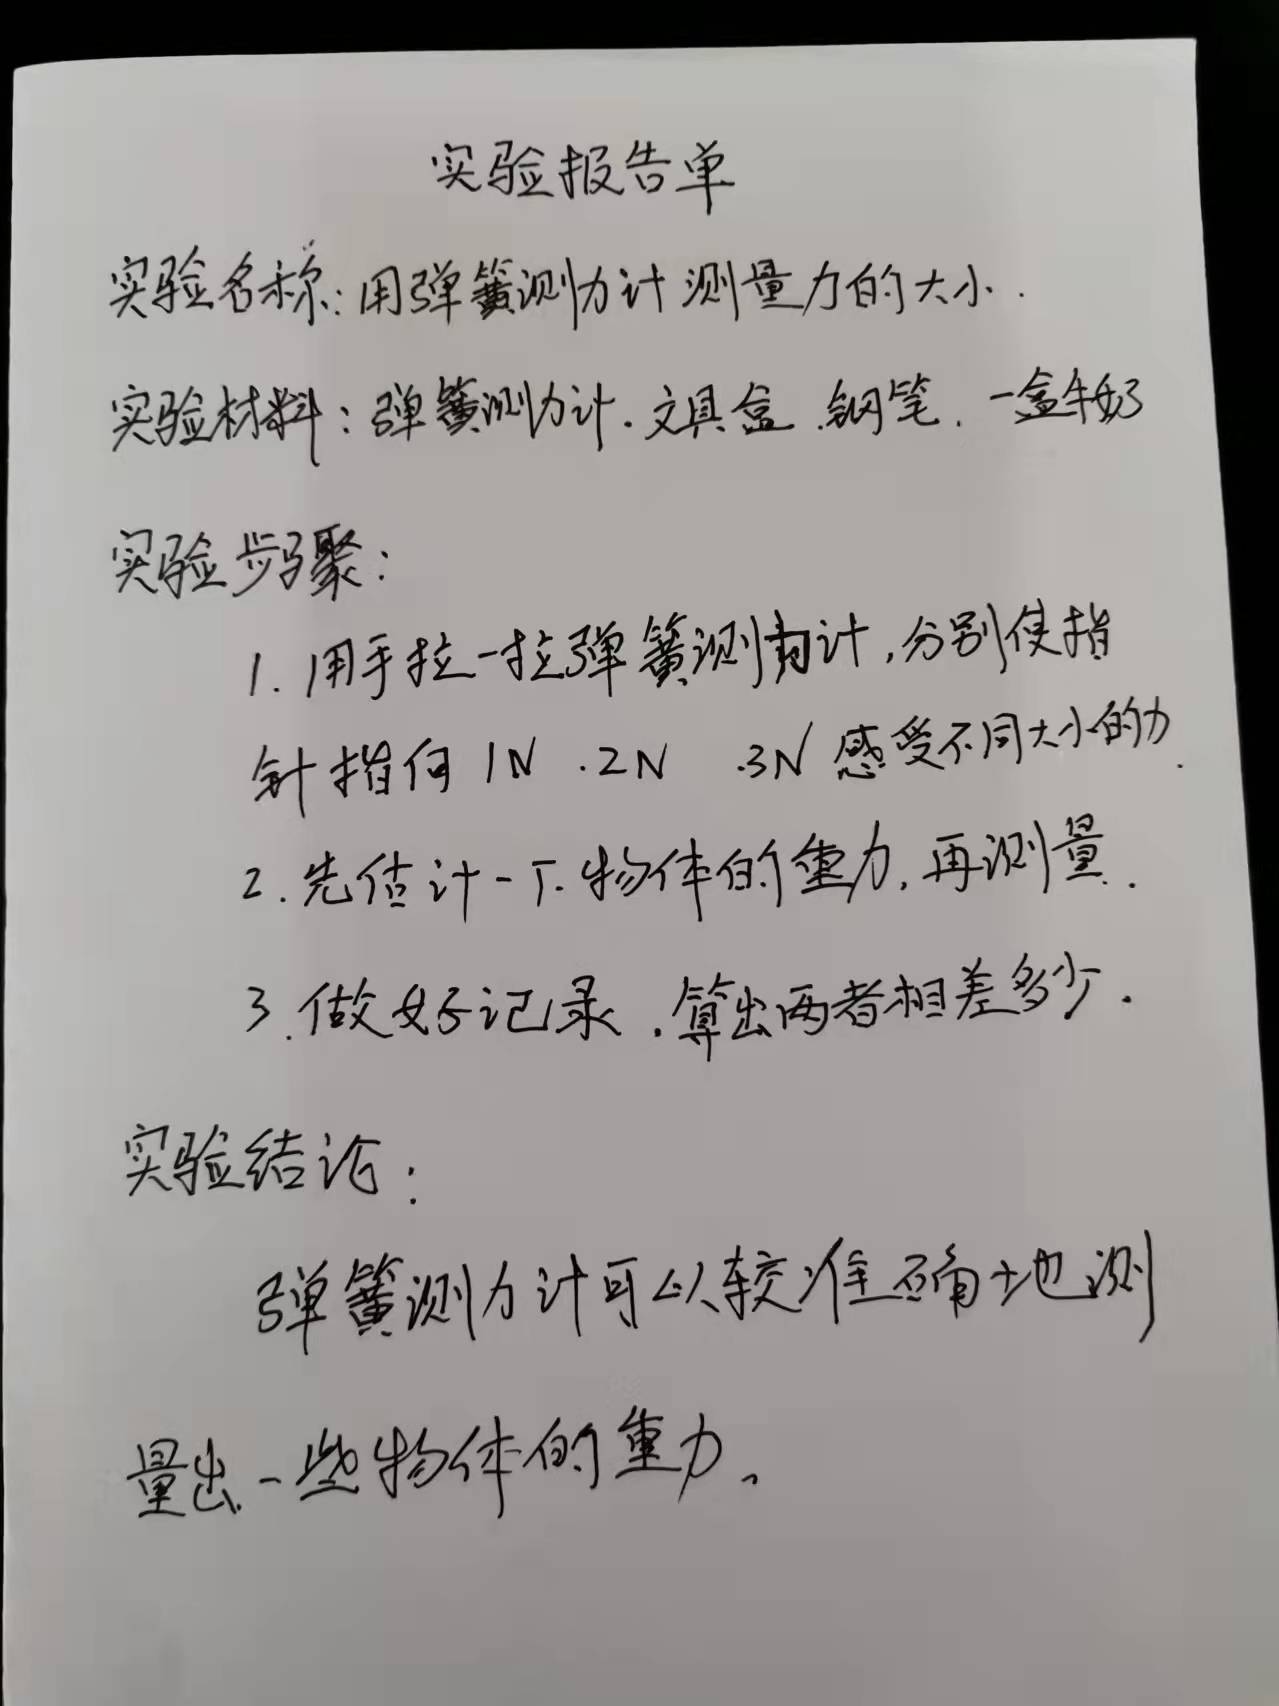 实验报告单
实验名称：用弹簧测力计测量力的大小.
实验材料：弹簧测力计.文具盒.钢笔.一盒牛奶
实验步骤：
1.用手拉一拉弹簧测力计,分别使指
针指向1N.2N .3N感受不同大小的力.
2.先估计一下.物体的重力,再测量.
3.做好记录.算出两者相差多少.
实验结论：
弹簧测力计可以较准确地测
量出一些物体的重力。